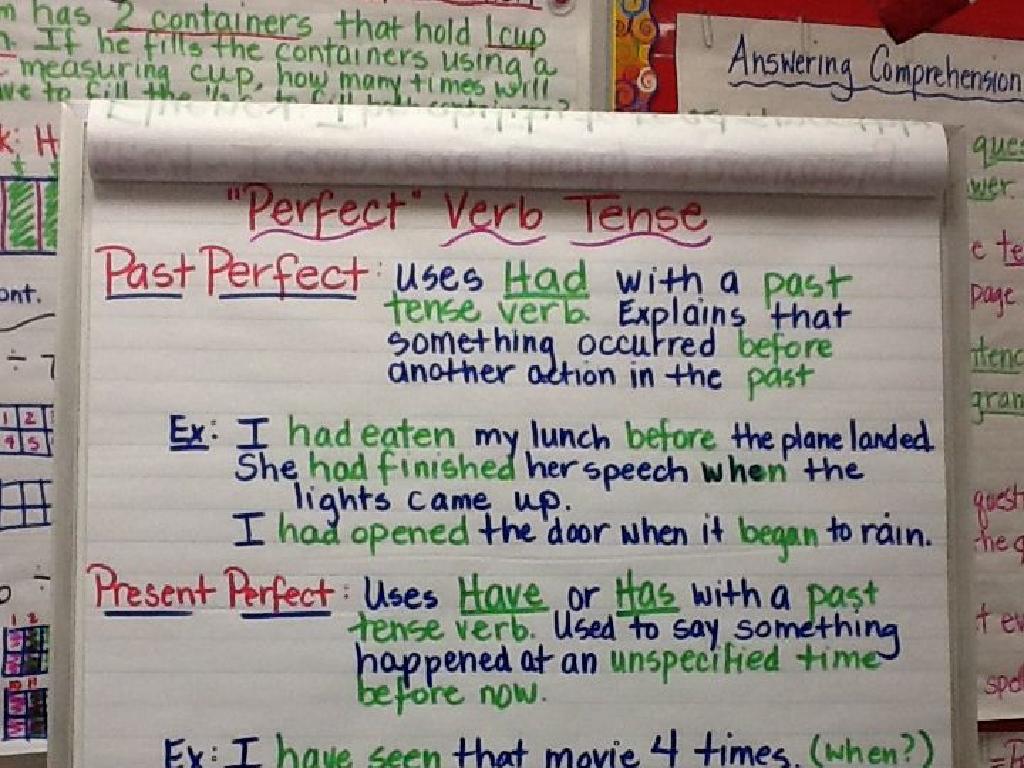 has 2 containers that hold 1cup
If he fills the containers using a
measuring cup, how many times will
to fill the
Answering Comprehension
"Perfect" Verb Tense
Past Perfect: Uses Had with a past
tense verb. Explains that
something occurred before
another action in the past
Ex: I had eaten my lunch before the plane landed
She had finished her speech when the
lights came up.
I had opened the door when it began to rain.
Present Perfect: Uses Have or Has with a past
tense verb. Used to say something
happened at an unspecified time
before now.
Ex: I have seen that movie 4 times. (when?)
ont.
÷ 7
1 2
4 5
1 2
page